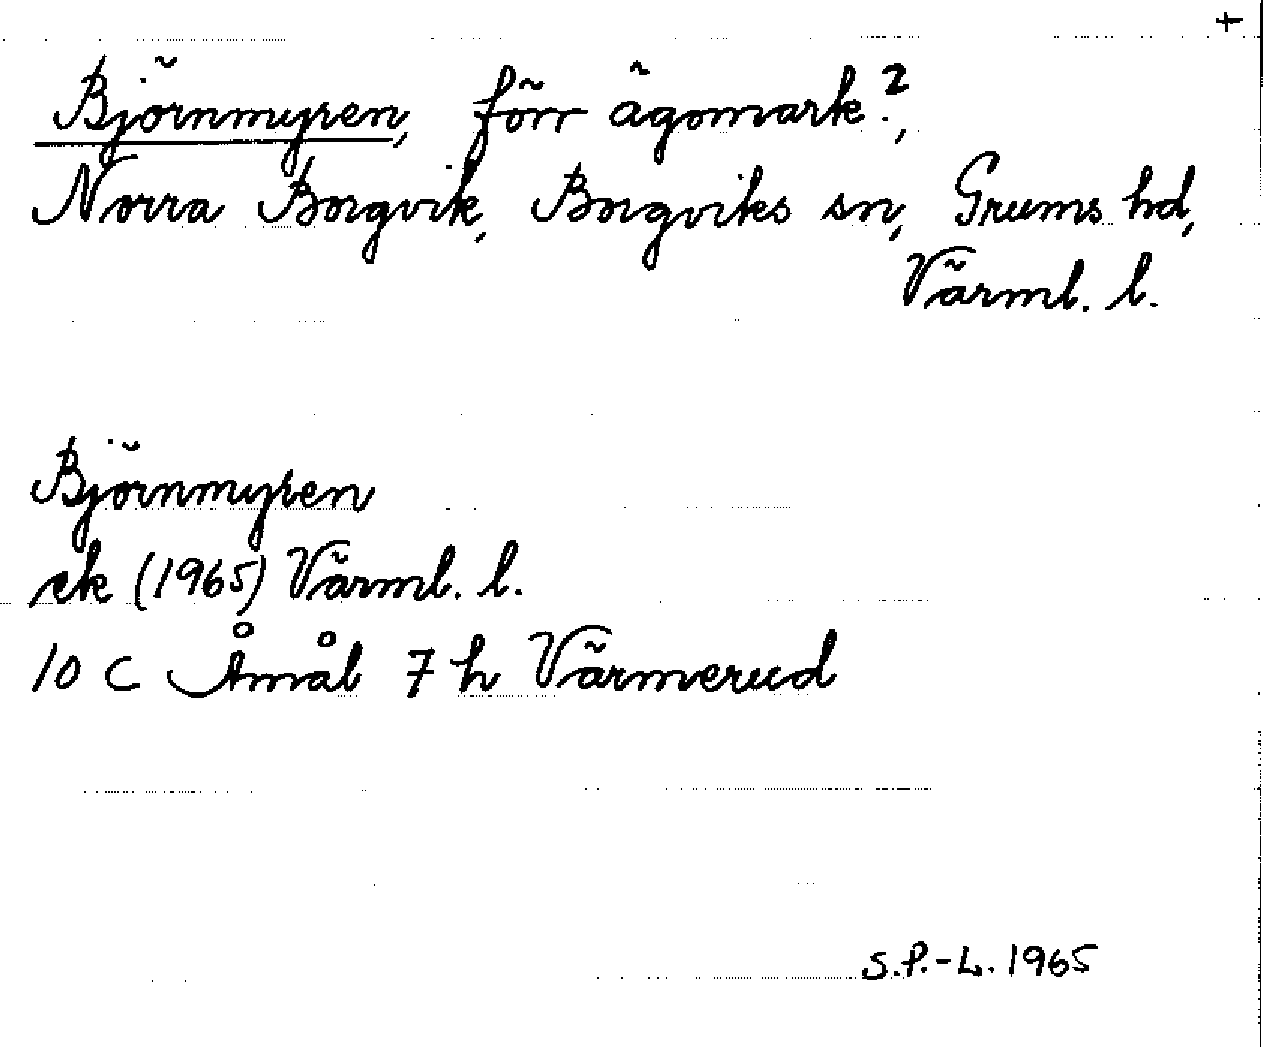 +
Björnmyren, förr ägomark?,
Norra Borgvik, Borgviks sn, Grums hd,
Värml. l.
Björnmyren
ek (1965) Värml. l.
10 C Åmål 7 h Värmerud
S.P.-L. 1965